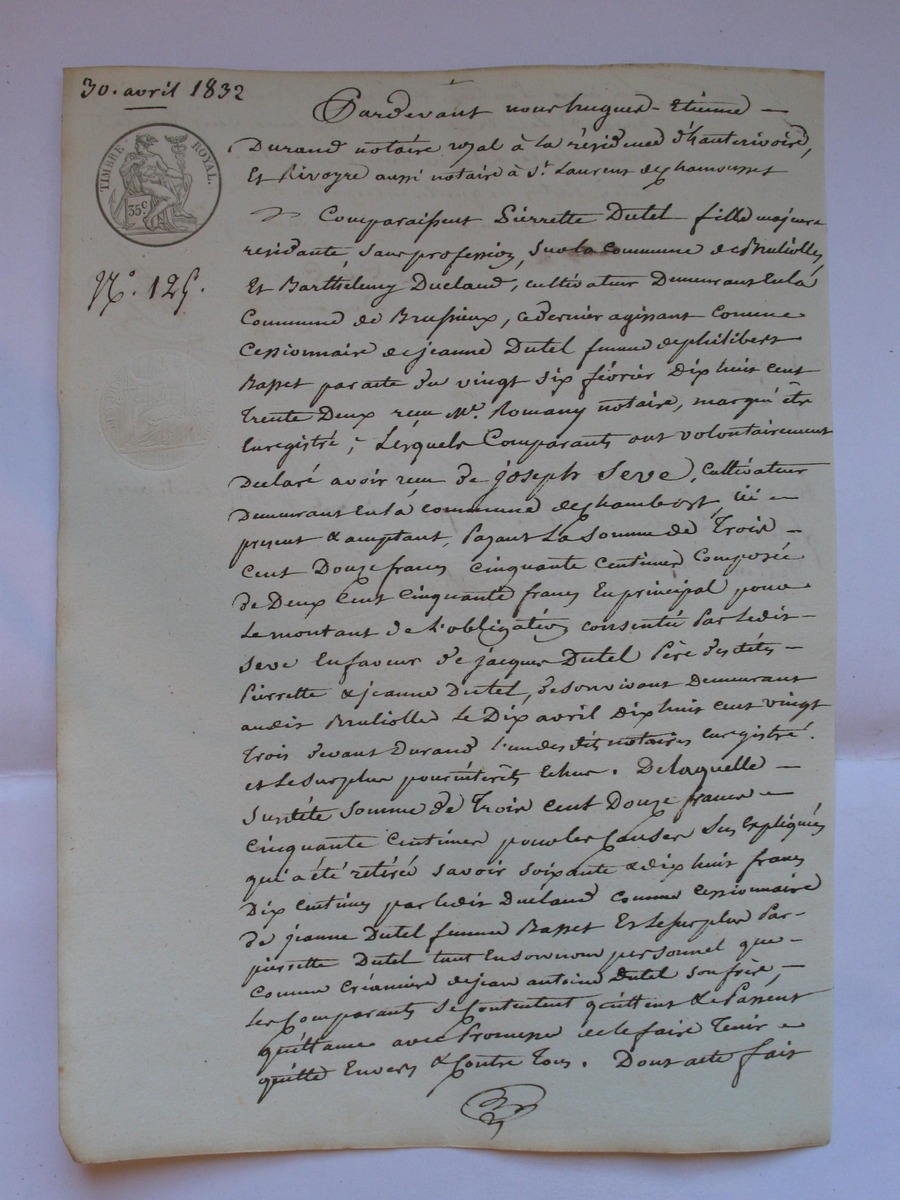 30. avril 1832
TIMBRE ROYAL.
35.c
N.o 125.
Pardevant nous hugues - Etienne -
Durand notaire royal à la résidence d'hauterivoire,
Et Rivoyre aussi notaire à St. Laurent de chamousset
Comparaissent Pierrette Dutel fille majeure
residante, sans profession, sur la commune de Bruliolles,
Et Barthelemy Duclaud, cultivateur Demeurant En la
Commune de Brussieux, ce dernier agissant Comme
Cessionnaire de jeanne Dutel femme de philibert
Basset par acte du vingt six février Dix huit cent
Trente Deux reçu Me. Romany notaire, marqué être
Enregistré ; Lesquels Comparants ont volontairement
Déclaré avoir reçu de joseph Seve, Cultivateur
Demeurant En la commune de chambost, ici -
present & acceptant, Payant La Somme de Trois -
Cent Douze francs cinquante centimes Composée
de Deux Cent Cinquante francs En principal pour
Le montant de l'obligation consentie Par ledit -
Seve En faveur de jacques Dutel Père desdites -
Pierrette & jeanne Dutel, de son vivant Demeurant
audit Bruliolles Le Dix avril Dix huit cent vingt
Trois devant Durand l'un desdits notaires Enregistré.
et Le Surplus pour intérêts Echus. De laquelle -
Susdite Somme de Trois Cent Douze francs -
Cinquante Centimes pour les Causes Sus Expliquées
qui a été retirée savoir soixante & dix huit francs
Dix Centimes par ledit Duclaud comme cessionnaire
de jeanne Dutel femme Basset Et Le Surplus Par -
pierrette Dutel tant En son nom personnel que -
Comme Créancière de jean antoine Dutel son frère, -
Les Comparants Se Contentent quittent & Passent
quittance avec Promesse de le faire Tenir -
quitte Envers & Contre Tous. Dont acte fait